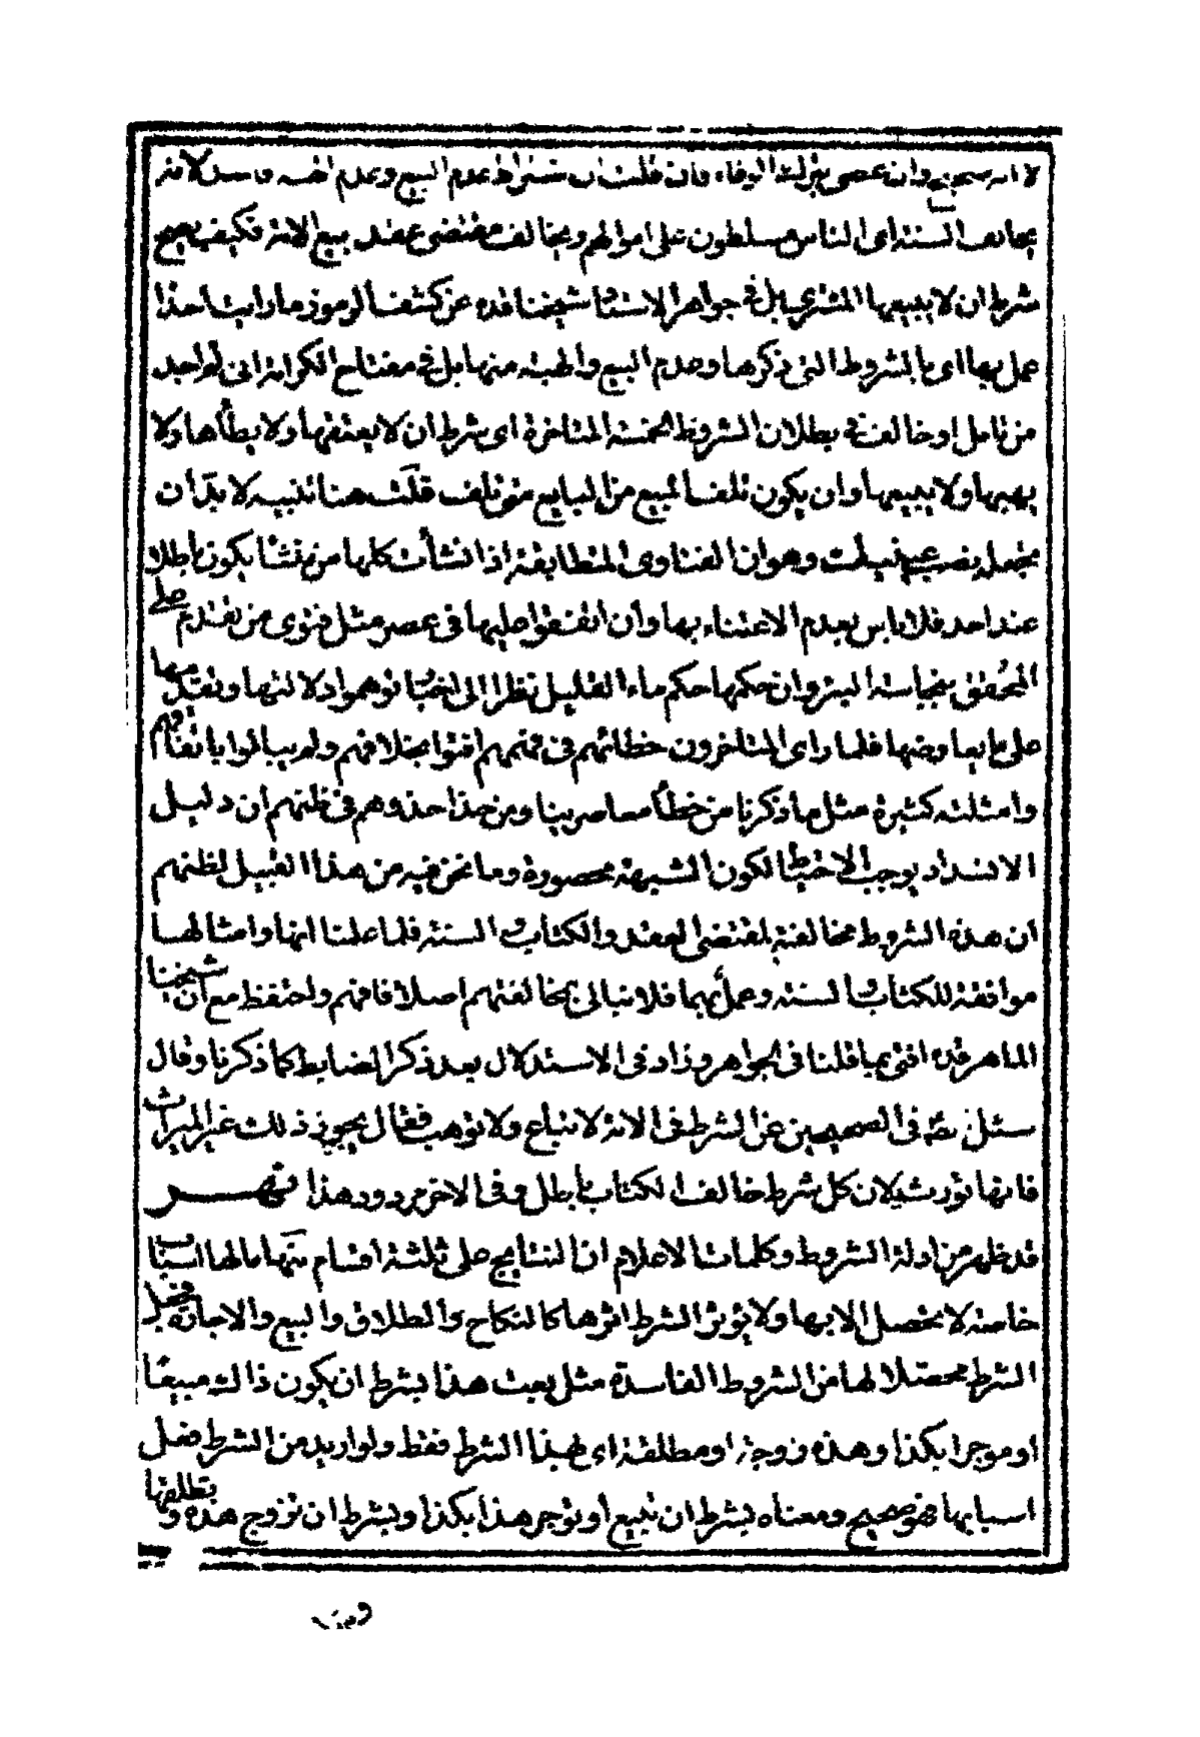 لانه صحيح وان عصى بترك الوفاء فان قلت ان اشتراط عدم البيع وعدم الهبه فاسد لانه
يخالف السنة اى الناس مسلطون على اموالهم ويخالف مقتضى عقد بيع الامة فكيف يصح
شرط ان لا يبيعها المشترى بل فى جواهر الاستاد شيخنا قده عن كشف الرموز ما رايت احدا
عمل بها اى بالشروط التى ذكرها وعدم البيع والهبة منها بل فى مفتاح الكرامة انى لم اجد
من تامل او خالف فى بطلان الشروط الخمسة المتاخرة اى شرط ان لا يعتقها ولا يطأها ولا
يهبها ولا يبيعها وان يكون تلف المبيع من البايع متى تلف قلت هنا تنبيه لا بد أن
يجعل نصب عينيك وهو ان الفتاوى المتطابقة اذا نشأت كلها من منشأ يكون باطلا
عند احد فلا باس بعدم الاعتناء بها وان اتفقوا عليها فى عصر مثل فتوى من تقدم على
المحقق بنجاسة البئر وان حكمها حكم ماء القليل نظرا الى اخبار توهموا دلالتها وتقديمها
على ما يعارضها فلما راى المتاخرون خطائهم فى فهمهم افتوا بخلافهم ولم يبالوا باتفاقهم
وامثلته كثيرة مثل ما ذكرنا من خطأ معاصرينا ومن حذا حذوهم فى ظنهم ان دليل
الانسداد يوجب الاحتياط لكون الشبهة محصورة وما نحن فيه من هذا القبيل لظنهم
ان هذه الشروط مخالفة لمقتضى العقد والكتاب والسنة فلما علمنا انها وامثالها
موافقة للكتاب والسنة وعمل بهما فلا نبالى بمخالفتهم اصلا فافهم واحتفظ مع ان شيخنا
الماهر قده افتى بما قلنا فى الجواهر وزاد فى الاستدلال بعد ذكر الضابط كما ذكرنا وقال
سئل عنه فى الصحيحين عن الشرط فى الامة لا تباع ولا توهب فقال يجوز ذلك غير الميراث
فانها تورث لان كل شرط خالف الكتاب باطل وفى الاخر مردود هذا
قد ظهر من ادلة الشروط وكلمات الاعلام ان النتايج على ثلثة اقسام منها ما لها اسباب
خاصة لا يحصل الا بها ولا يؤثر الشرط اثرها كالنكاح والطلاق والبيع والاجارة
الشرط محصلا لها من الشروط الفاسدة مثل بعت هذا بشرط ان يكون ذاك مبيعا
او موجرا بكذا وهذه زوجة او مطلقة اى بهذا الشرط فقط ولو اريد من الشرط فعل
اسبابها فهو صحيح ومعناه بشرط ان تبيع او توجر هذا بكذا وبشرط ان تزوج هذه وتطلقها